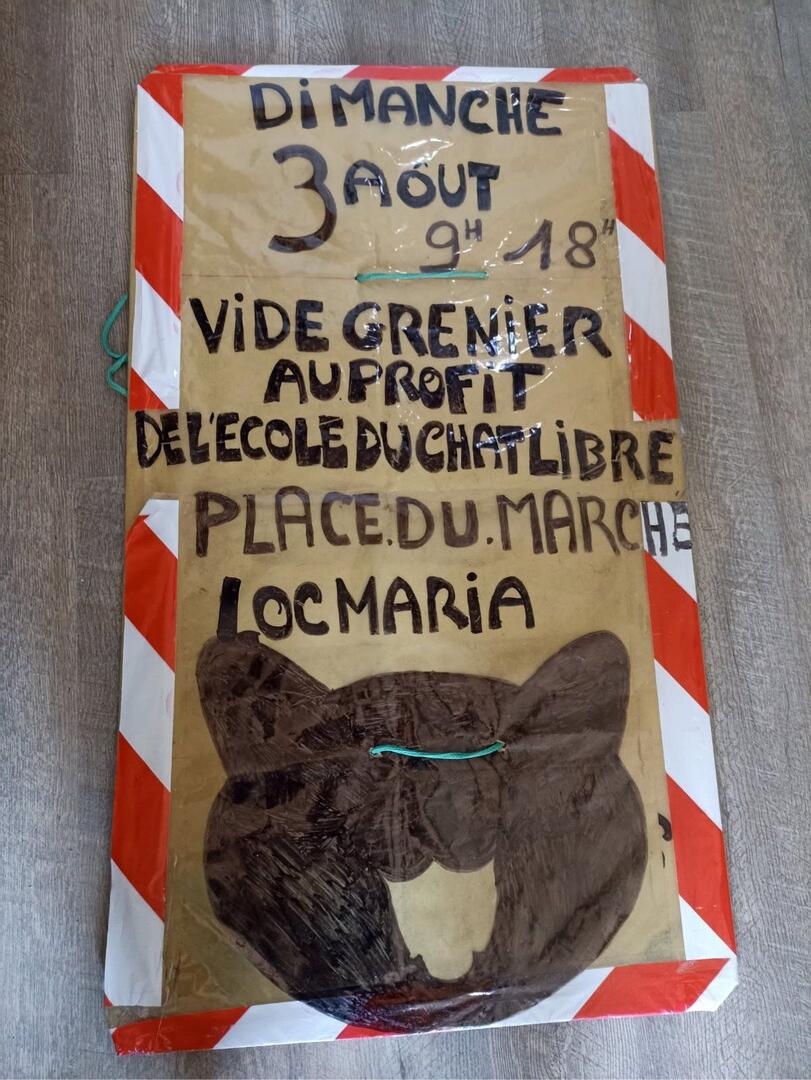 DiMANCHE
3 AOÛT
9H 18H
ViDE GRENiER
AU PROFiT
DE L'ECOLE DU CHAT LiBRE
PLACE.DU.MARCHE
LOCMARiA